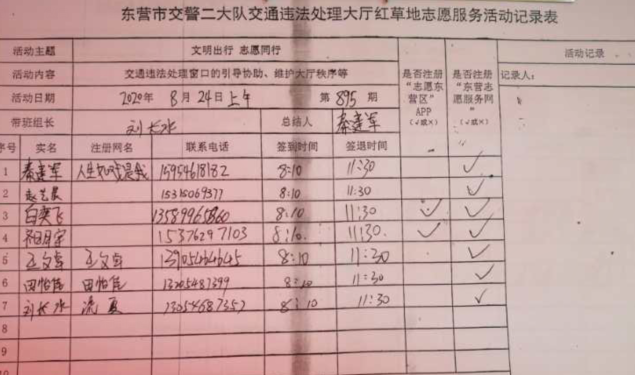 东营市交警二大队交通违法处理大厅红草地志愿服务活动记录表
活动主题 文明出行 志愿同行 活动记录
活动内容 交通违法处理窗口的引导协助、维护大厅秩序等 是否注册“志愿东营区”APP(√或×) 是否注册“东营志愿服务网”(√或×) 记录人:
活动日期 2020年 8月24日上午 第 895 期
带班组长 刘长水 总结人 秦建军
序号 实名 注册网名 联系电话 签到时间 签退时间
1 秦建军 15954618182 8:10 11:30 √
2 15315069377 8:10 11:30 √
3 白雲飞 8:10 11:30 √ √
4 15376297103 8:10 11:30 √ √
5 王文章 王文章 8:10 11:30 √
6 田怡佳 田怡佳 13205487399 8:10 11:30 √
7 刘长水 流夏 13054687357 8:10 11:30 √
8
9
10